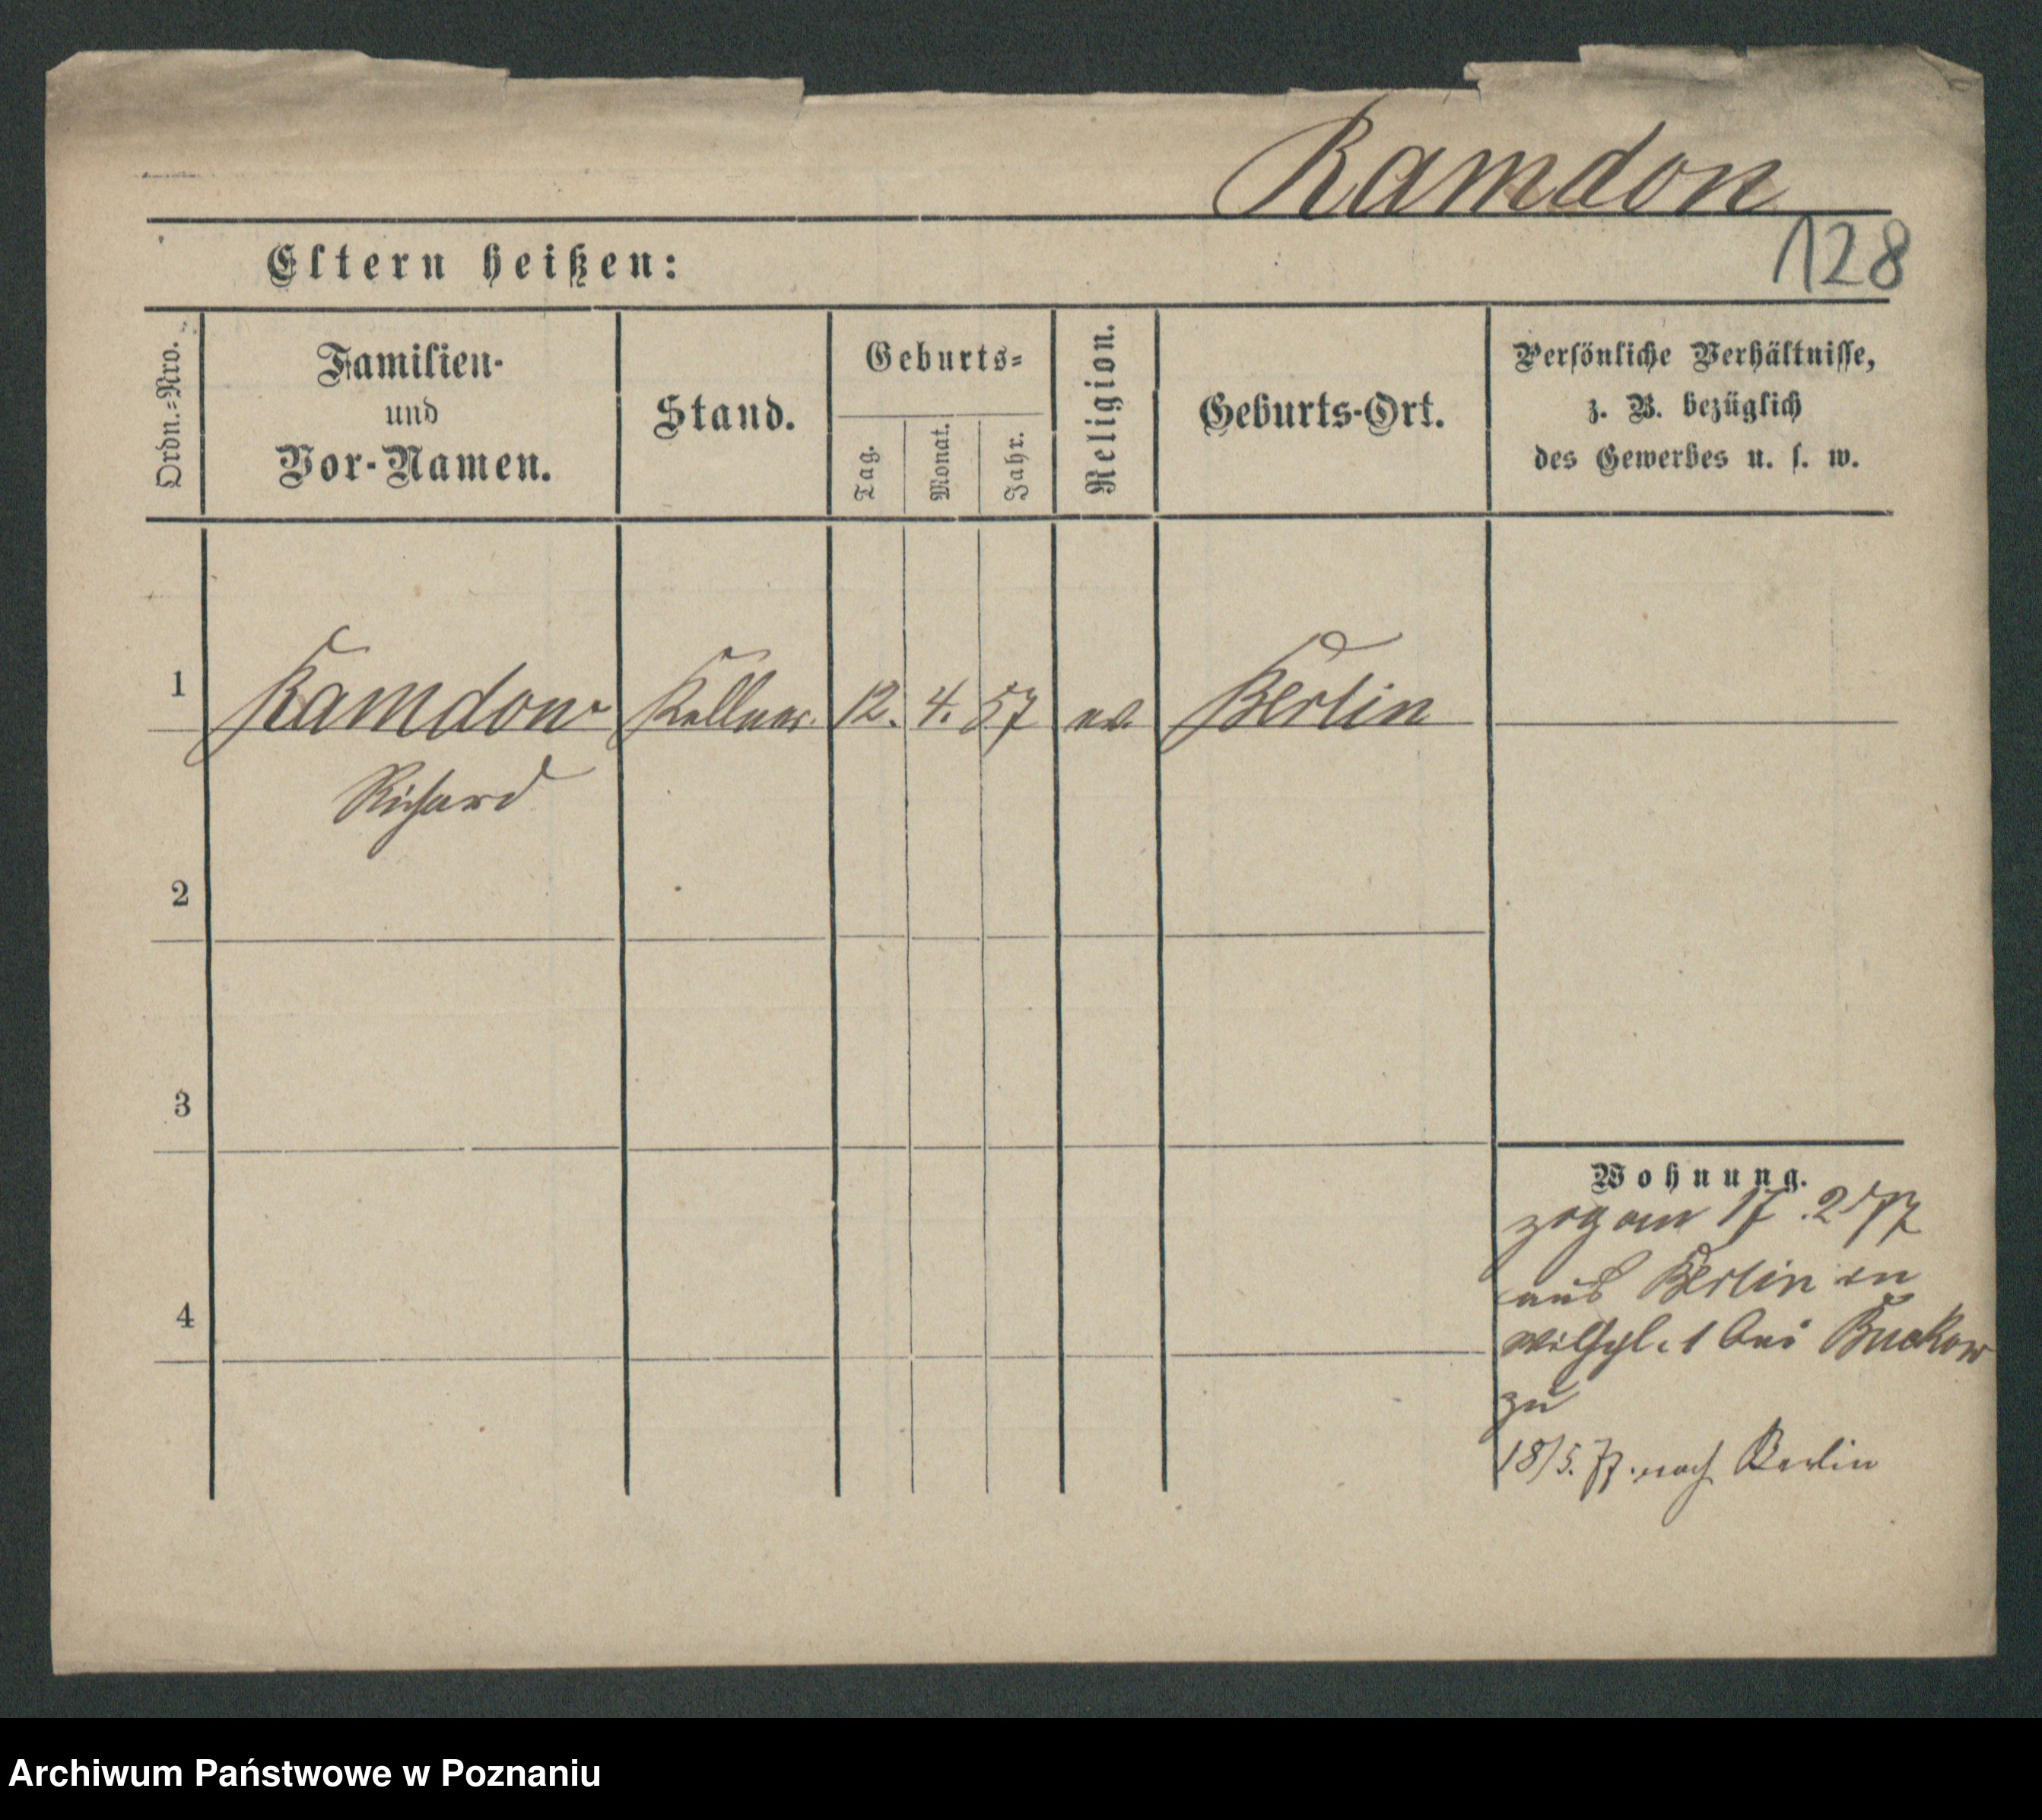 Ramdon
128
Eltern heißen:
Ordn.=Nro.
Familien-
und
Vor-Namen.
Stand.
Geburts=
Tag.
Monat.
Jahr.
Religion.
Geburts-Ort.
Persönliche Verhältnisse,
z. B. bezüglich
des Gewerbes u. s. w.
1 Ramdon Kellner. 12. 4. 57 ev. Berlin
Richard
2
3
4
Wohnung.
zog am 17. 2 77
aus Berlin
1 bei Buckow
zu
18/5. 77. nach Berlin
Archiwum Państwowe w Poznaniu